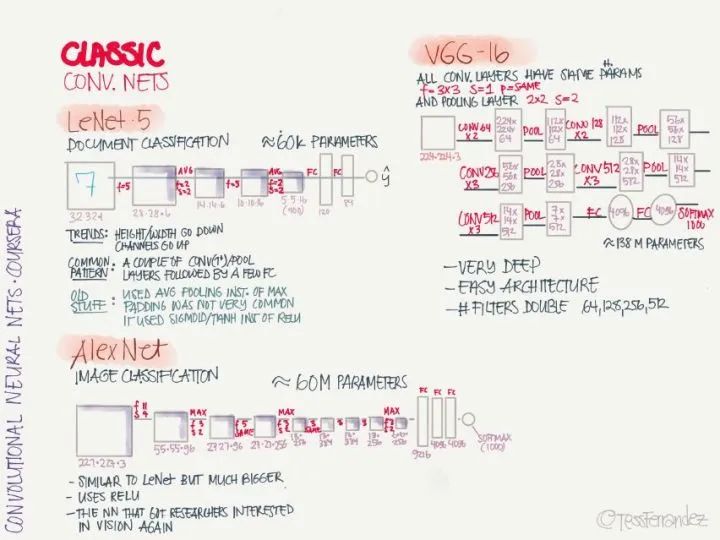 CLASSIC
CONV. NETS
LeNet-5
DOCUMENT CLASSIFICATION ≈60K PARAMETERS
7
f=5
AVG
f=2
S=2
f=5
AVG
f=2
S=2
FC
FC
ŷ
32·32·1
28·28·6
14·14·6
10·10·16
5·5·16
(400)
120
84
TRENDS: HEIGHT/WIDTH GO DOWN
CHANNELS GO UP
COMMON PATTERN: A COUPLE OF CONV(1+)/POOL
LAYERS FOLLOWED BY A FEW FC
OLD STUFF: USED AVG POOLING INST. OF MAX
PADDING WAS NOT VERY COMMON
IT USED SIGMOID/TANH INST OF RELU
AlexNet
IMAGE CLASSIFICATION ≈ 60M PARAMETERS
f 11
S 4
MAX
f 3
S 2
f 5
SAME
MAX
f 3
S 2
3
SAME
3
3
MAX
f 3
S 2
FC FC FC
227·227·3
55·55·96
27·27·96
27·27·256
13·
384
13·
384
13·
256
9216
4096
4096
SOFTMAX
(1000)
- SIMILAR TO LeNet BUT MUCH BIGGER
- USES RELU
- THE NN THAT GOT RESEARCHERS INTERESTED
IN VISION AGAIN
VGG-16
ALL CONV. LAYERS HAVE SAME PARAMS
f=3X3 S=1 P=SAME
AND POOLING LAYER 2X2 S=2
224·224·3
CONV 64
X2
224x
224x
64
POOL
112x
112x
64
CONV 128
X2
112x
112x
128
POOL
56x
56x
128
CONV 256
X3
56x
56x
256
POOL
28x
28x
256
CONV 512
X3
28x
28x
512
POOL
14x
14x
512
CONV 512
X3
14x
14x
512
POOL
7x
7x
512
FC
4096
FC
4096
SOFTMAX
1000
≈138 M PARAMETERS
- VERY DEEP
- EASY ARCHITECTURE
- # FILTERS DOUBLE 64,128,256,512
CONVOLUTIONAL NEURAL NETS · COURSERA
@TessFerrandez